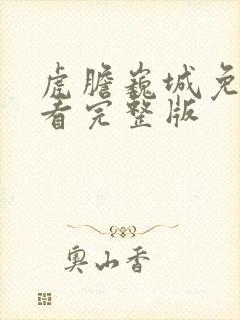 虎膽巍城免
看完整版
奥山香